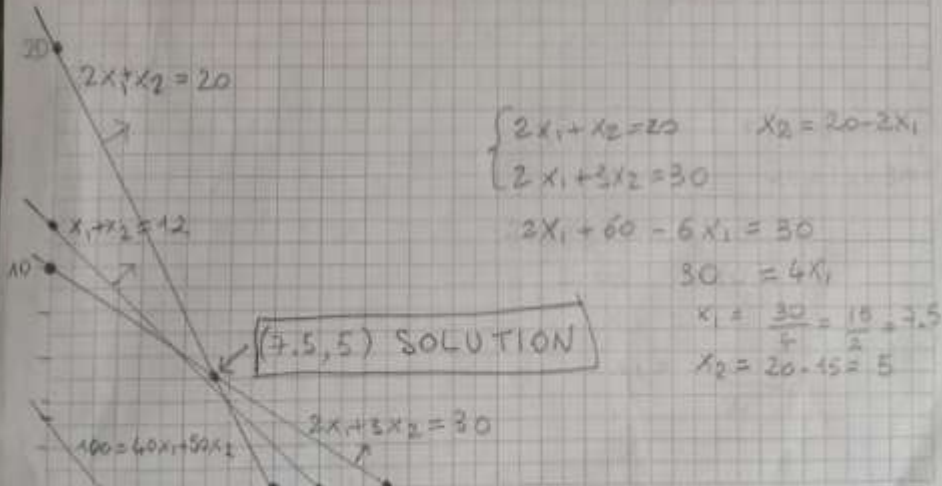 20
2x₁+x₂ = 20
x₁+x₂ = 12
10
(7.5, 5) SOLUTION
2x₁+3x₂ = 30
100 = 40x₁+50x₂
2x₁+x₂ = 20
x₂ = 20-2x₁
2x₁+3x₂ = 30
2x₁ + 60 - 6x₁ = 30
30 = 4x₁
x₁ = 30/4 = 15/2 = 7.5
x₂ = 20-15 = 5